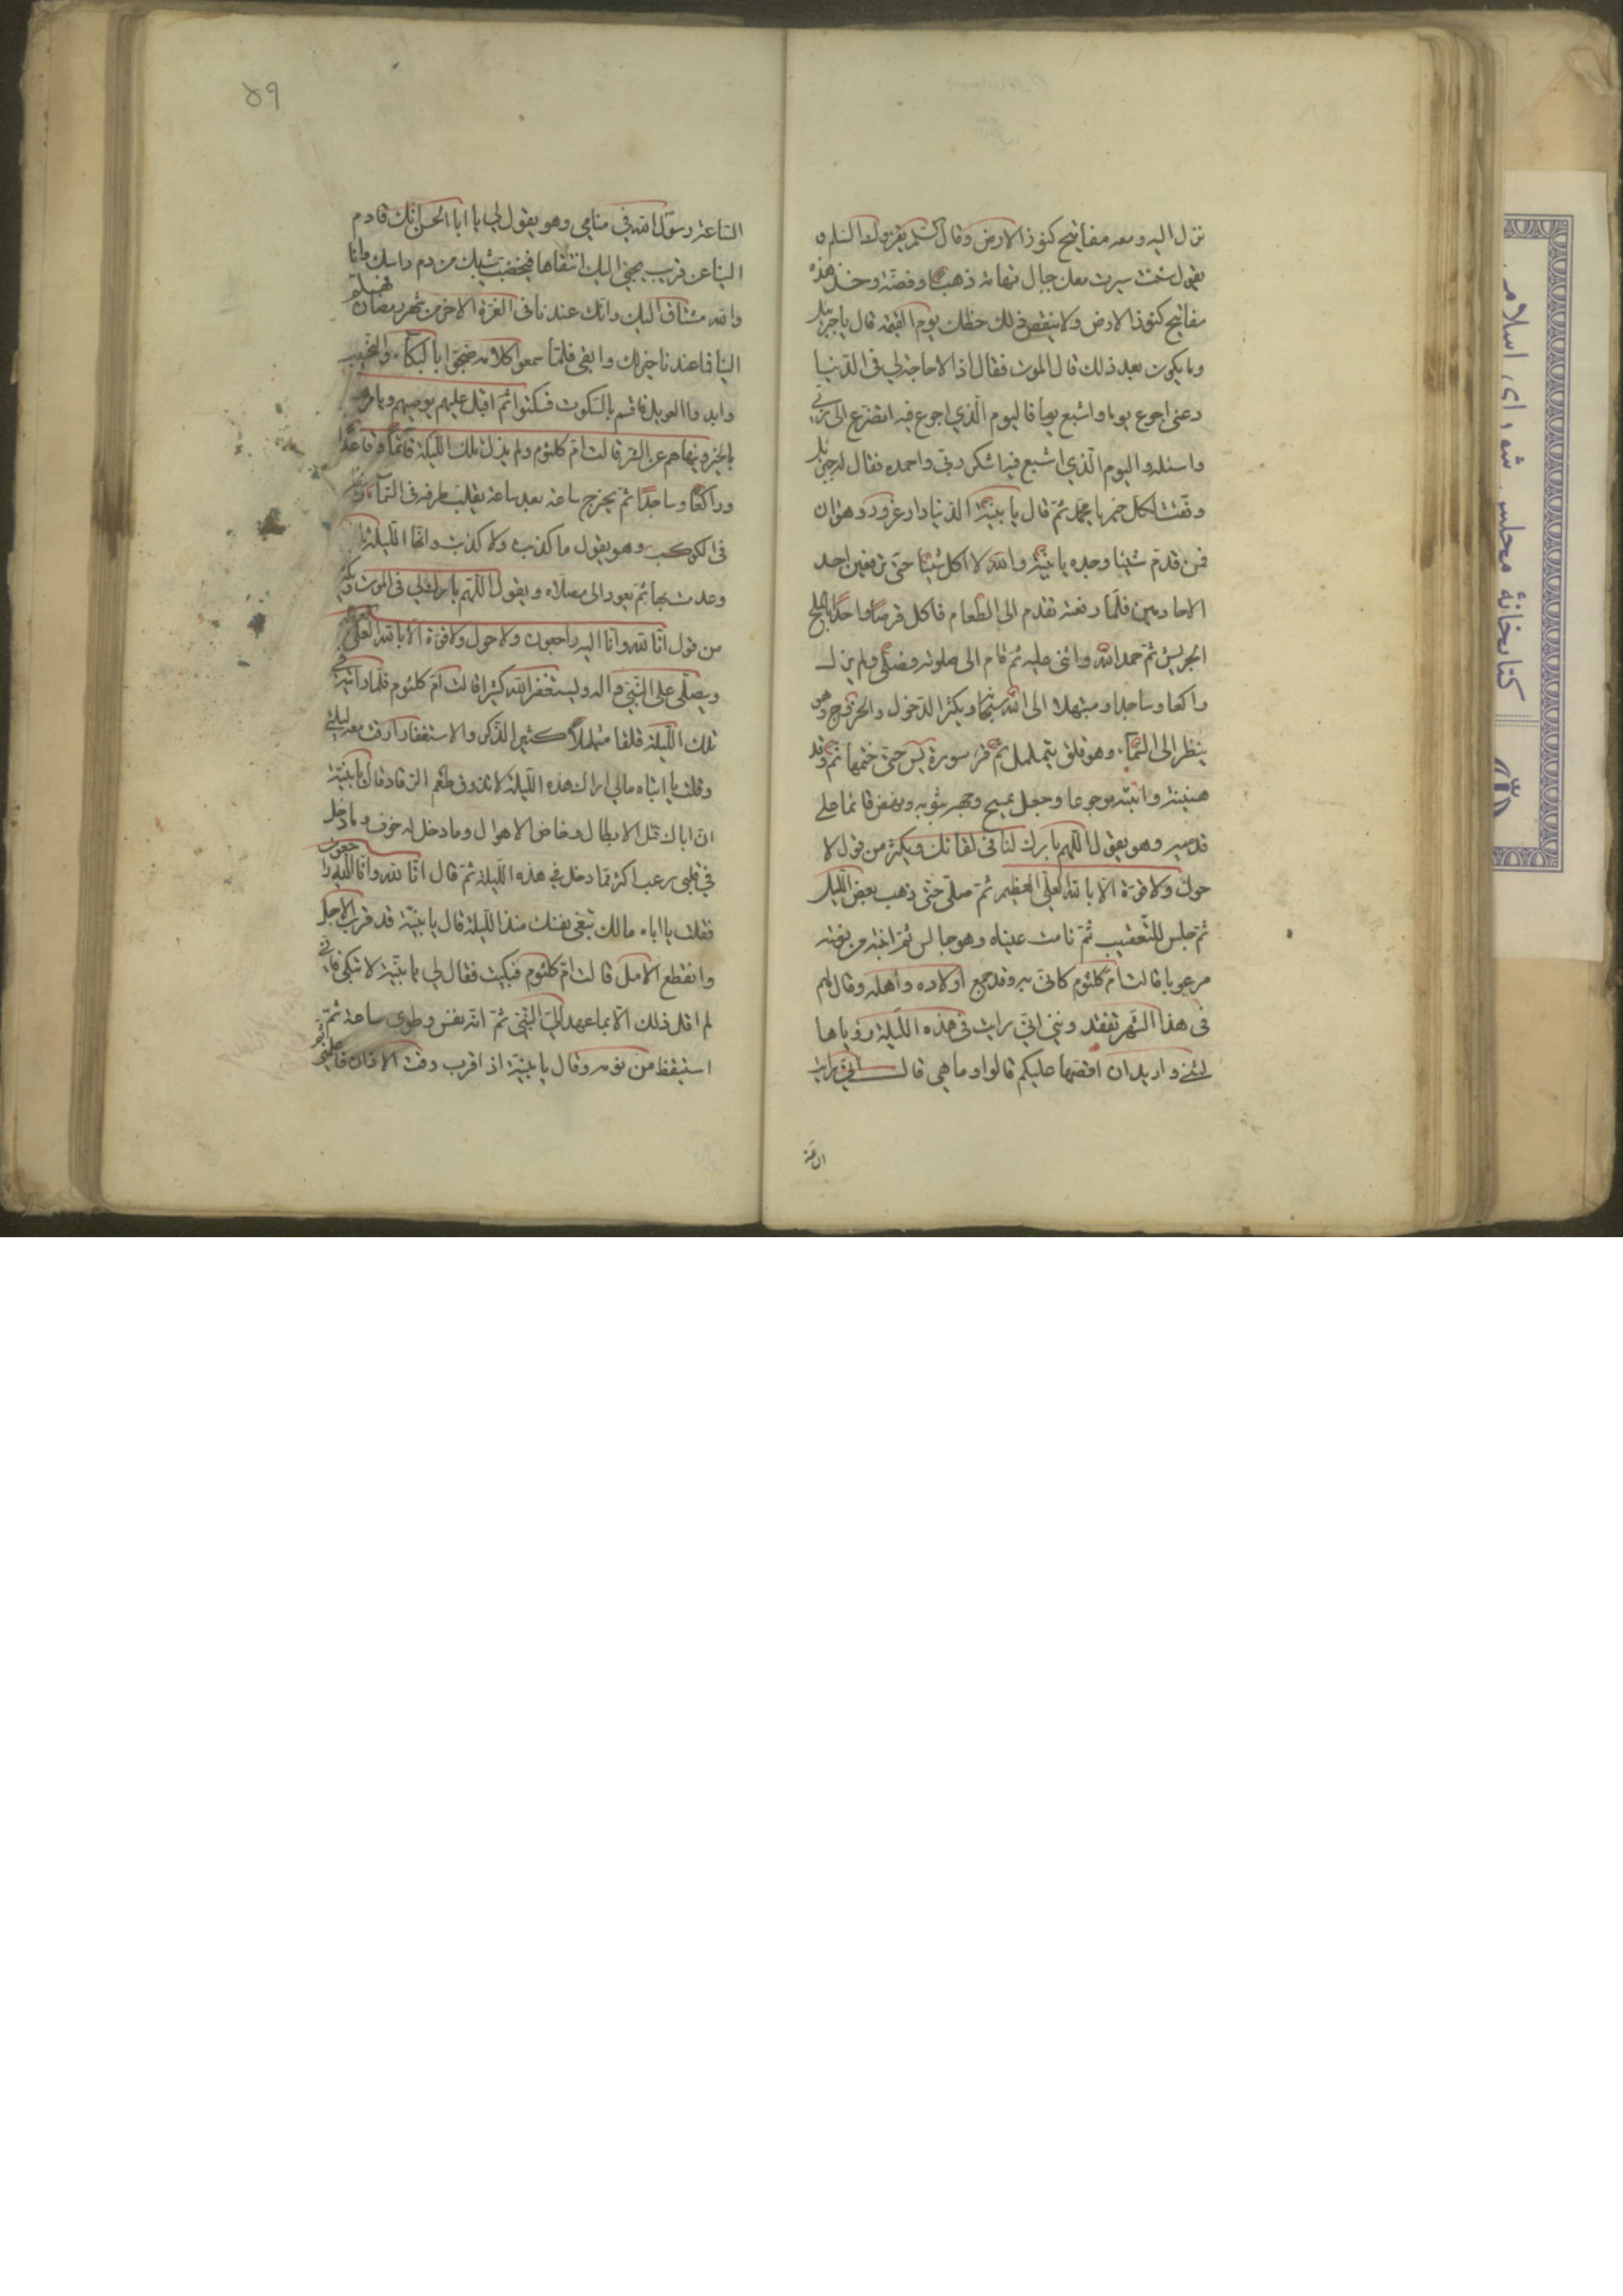 نزل اليه ومعه مفاتيح كنوز الارض وقال السلم يقرئك السلم و
يقول شئت سيرت معك جبال تهامة ذهبا وفضة وخذ هذه
مفاتيح كنوز الارض ولا ينقص ذلك حظك يوم القيمة قال يا جبرئيل
وما يكون بعد ذلك قال الموت فقال اذا لا حاجة لي في الدنيا
دعني اجوع يوما واشبع يوما فاليوم الذي اجوع فيه اتضرع الى ربي
واسئله واليوم الذي اشبع فيه اشكر ربي واحمده فقال له جبرئيل
وفقت لكل خير يا محمد ثم قال يا بنية الدنيا دار غرور وهوان
فمن قدم شيئا وجده يا بنية والله لا اكل شيئا حتى ترفعين احد
الادامين فلما رفعته تقدم الى الطعام فاكل قرصا واحدا بالملح
الجريش ثم حمد الله واثنى عليه ثم قام الى صلوته فصلى ولم يزل
راكعا وساجدا ومبتهلا الى الله سبحانه ويكثر الدخول والخروج وهو
ينظر الى السماء وهو قلق يتململ ثم قرء سورة يس حتى ختمها ثم رقد
هنيئة وانتبه مرعوبا وجعل يمسح وجهه بثوبه ونهض قائما على
قدميه وهو يقول اللهم بارك لنا في لقائك ويكثر من قول لا
حول ولا قوة الا بالله العلي العظيم ثم صلى حتى ذهب بعض الليل
ثم جلس للتعقيب ثم نامت عيناه وهو جالس ثم انتبه من نومته
مرعوبا قالت ام كلثوم كاني به وقد جمع اولاده واهله وقال لهم
في هذا الشهر تفقدونني اني رايت في هذه الليلة رؤيا ها
لتني واريد ان اقصها عليكم قالوا وما هي قال اني رايت
الساعة
۵۹
الساعة رسول الله في منامي وهو يقول لي يا ابا الحسن انك قادم
الينا عن قريب يجئ اليك اشقاها فيخضب شيبك من دم راسك وانا
والله مشتاق اليك وانك عندنا في العشر الاخر من شهر رمضان فهلم
الينا فما عندنا خير لك وابقى فلما سمعوا كلامه ضجوا بالبكاء والنحيب
وابدوا العويل فاقسم بالسكوت فسكتوا ثم اقبل عليهم يوصيهم ويامرهم
بالخير وينهاهم عن الشر قالت ام كلثوم ولم يزل تلك الليلة قائما وقاعدا
وراكعا وساجدا ثم يخرج ساعة بعد ساعة يقلب طرفه في السماء وينظر
في الكوكب وهو يقول ما كذبت ولا كذبت وانها الليلة التي
وعدت بها ثم يعود الى مصلاه ويقول اللهم بارك لي في الموت ويكثر
من قول انا لله وانا اليه راجعون ولا حول ولا قوة الا بالله العلي العظيم
ويصلي على النبي واله ويستغفر الله كثيرا قالت ام كلثوم فلما رايته في
تلك الليلة قلقا متململا كثير الذكر والاستغفار ارقت معه ليلتي
وقلت يا ابتاه مالي اراك هذه الليلة لا تذوق طعم الرقاد قال يا بنية
ان اباك قتل الابطال وخاض الاهوال وما دخل له خوف وما دخل
في قلبي رعب اكثر مما دخل في هذه الليلة ثم قال انا لله وانا اليه راجعون
فقلت يا اباه مالك تنعي نفسك منذ الليلة قال يا بنية قد قرب الاجل
وانقطع الامل قالت ام كلثوم فبكيت فقال لي يا بنية لا تبكي فاني
لم اقل ذلك الا بما عهد الي النبي ثم انه نعس وطوى ساعة ثم
استيقظ من نومه وقال يا بنية اذا قرب وقت الاذان فاعلميني
کتابخانهٔ مجلس شورای اسلامی